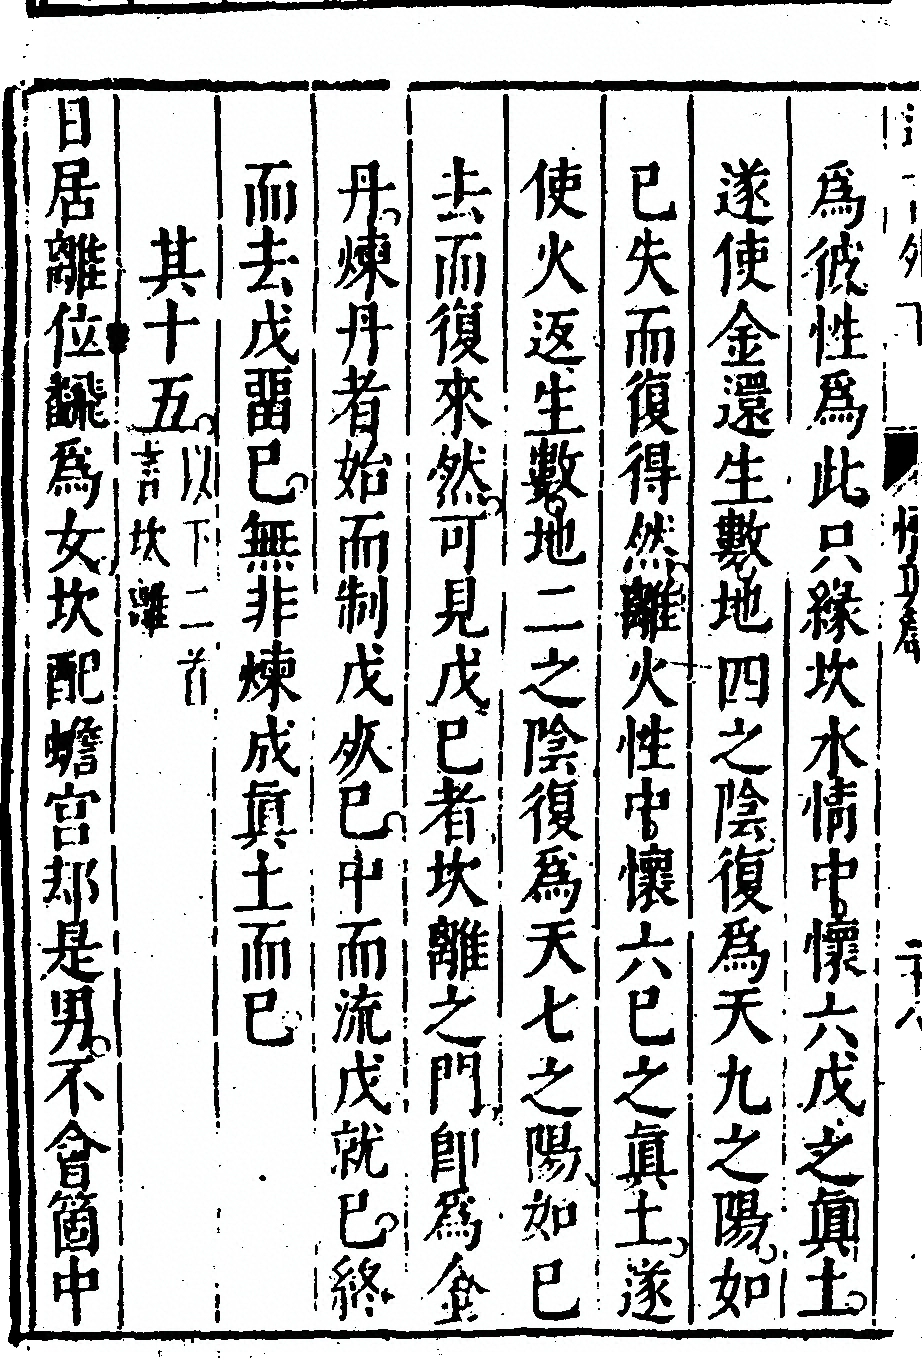 爲彼性爲此只緣坎水情中懷六戊之眞土
遂使金還生數地四之陰復爲天九之陽如
已失而復得然離火性中懷六已之眞土遂
使火返生數地二之陰復爲天七之陽如已
去而復來然可見戊已者坎離之門卽爲金
丹煉丹者始而制戊炏已中而流戊就已終
而去戊畱已無非煉成眞土而已
其十五
以下二首
言坎離
日居離位飜爲女坎配蟾宮却是男不會箇中